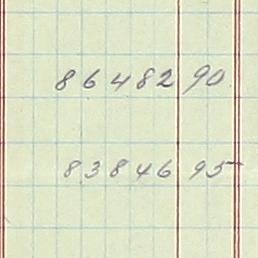 86482 90
83846 95